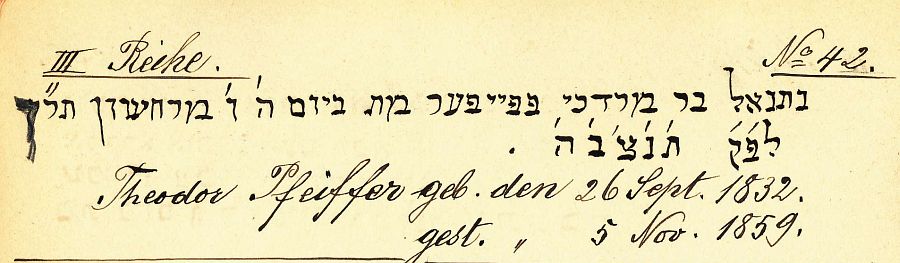 III Reihe. No 42.
נתנאל בר מרדכי פפייפער מת ביום ה' ו' מרחשוון תר"ך
לפ'ק' ת'נ'צ'ב'ה' .
Theodor Pfeiffer geb. den 26 Sept. 1832.
gest. " 5 Nov. 1859.